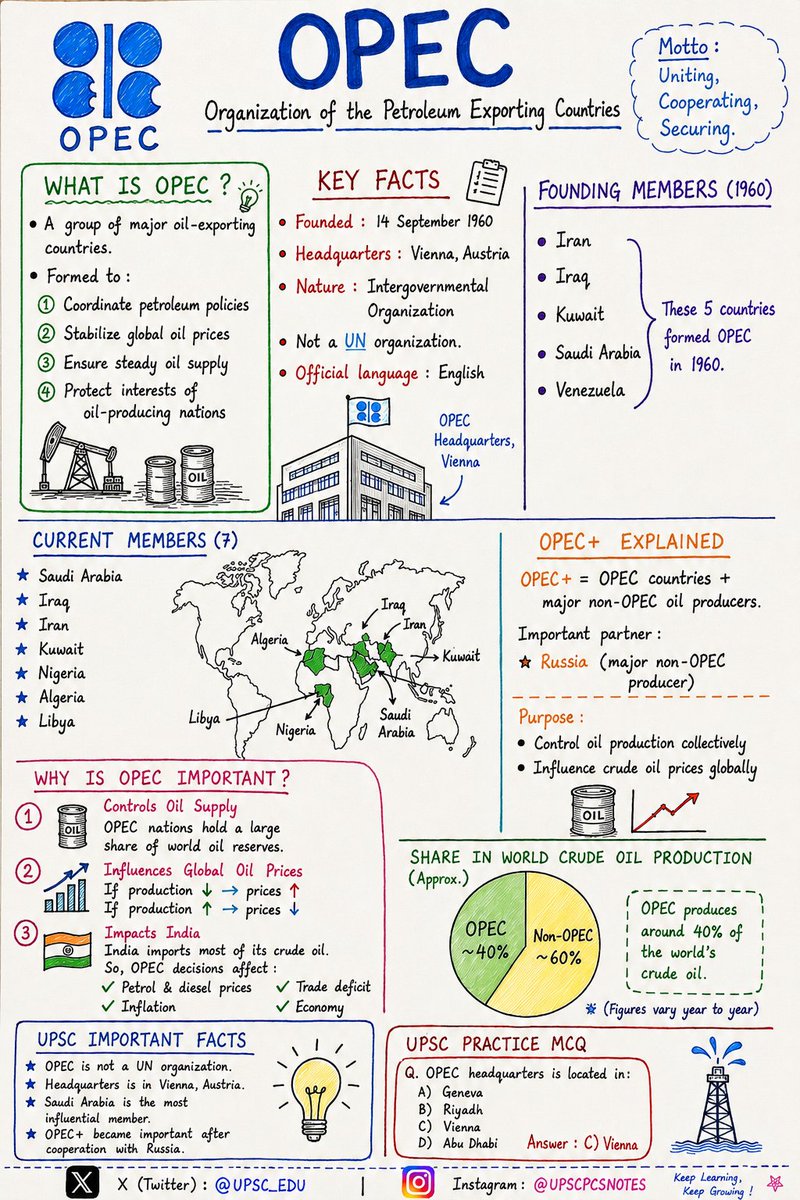 OPEC
OPEC
Organization of the Petroleum Exporting Countries
Motto :
Uniting,
Cooperating,
Securing.
WHAT IS OPEC ?
• A group of major oil-exporting
countries.
• Formed to :
1 Coordinate petroleum policies
2 Stabilize global oil prices
3 Ensure steady oil supply
4 Protect interests of
oil-producing nations
OIL
KEY FACTS
• Founded : 14 September 1960
• Headquarters : Vienna, Austria
• Nature : Intergovernmental
Organization
• Not a UN organization.
• Official language : English
OPEC
Headquarters,
Vienna
FOUNDING MEMBERS (1960)
• Iran
• Iraq
• Kuwait
• Saudi Arabia
• Venezuela
These 5 countries
formed OPEC
in 1960.
CURRENT MEMBERS (7)
★ Saudi Arabia
★ Iraq
★ Iran
★ Kuwait
★ Nigeria
★ Algeria
★ Libya
Iraq
Iran
Algeria
Kuwait
Libya
Nigeria
Saudi
Arabia
OPEC+ EXPLAINED
OPEC+ = OPEC countries +
major non-OPEC oil producers.
Important partner :
★ Russia (major non-OPEC
producer)
Purpose :
• Control oil production collectively
• Influence crude oil prices globally
OIL
WHY IS OPEC IMPORTANT ?
1 Controls Oil Supply
OIL
OPEC nations hold a large
share of world oil reserves.
2 Influences Global Oil Prices
If production ↓ → prices ↑
If production ↑ → prices ↓
3 Impacts India
India imports most of its crude oil.
So, OPEC decisions affect :
✓ Petrol & diesel prices ✓ Trade deficit
✓ Inflation ✓ Economy
SHARE IN WORLD CRUDE OIL PRODUCTION
(Approx.)
OPEC
~40%
Non-OPEC
~60%
OPEC produces
around 40% of
the world's
crude oil.
(Figures vary year to year)
UPSC IMPORTANT FACTS
★ OPEC is not a UN organization.
★ Headquarters is in Vienna, Austria.
★ Saudi Arabia is the most
influential member.
★ OPEC+ became important after
cooperation with Russia.
UPSC PRACTICE MCQ
Q. OPEC headquarters is located in:
A) Geneva
B) Riyadh
C) Vienna
D) Abu Dhabi Answer : C) Vienna
X (Twitter) : @UPSC_EDU | Instagram : @UPSCPCSNOTES
Keep Learning,
Keep Growing !